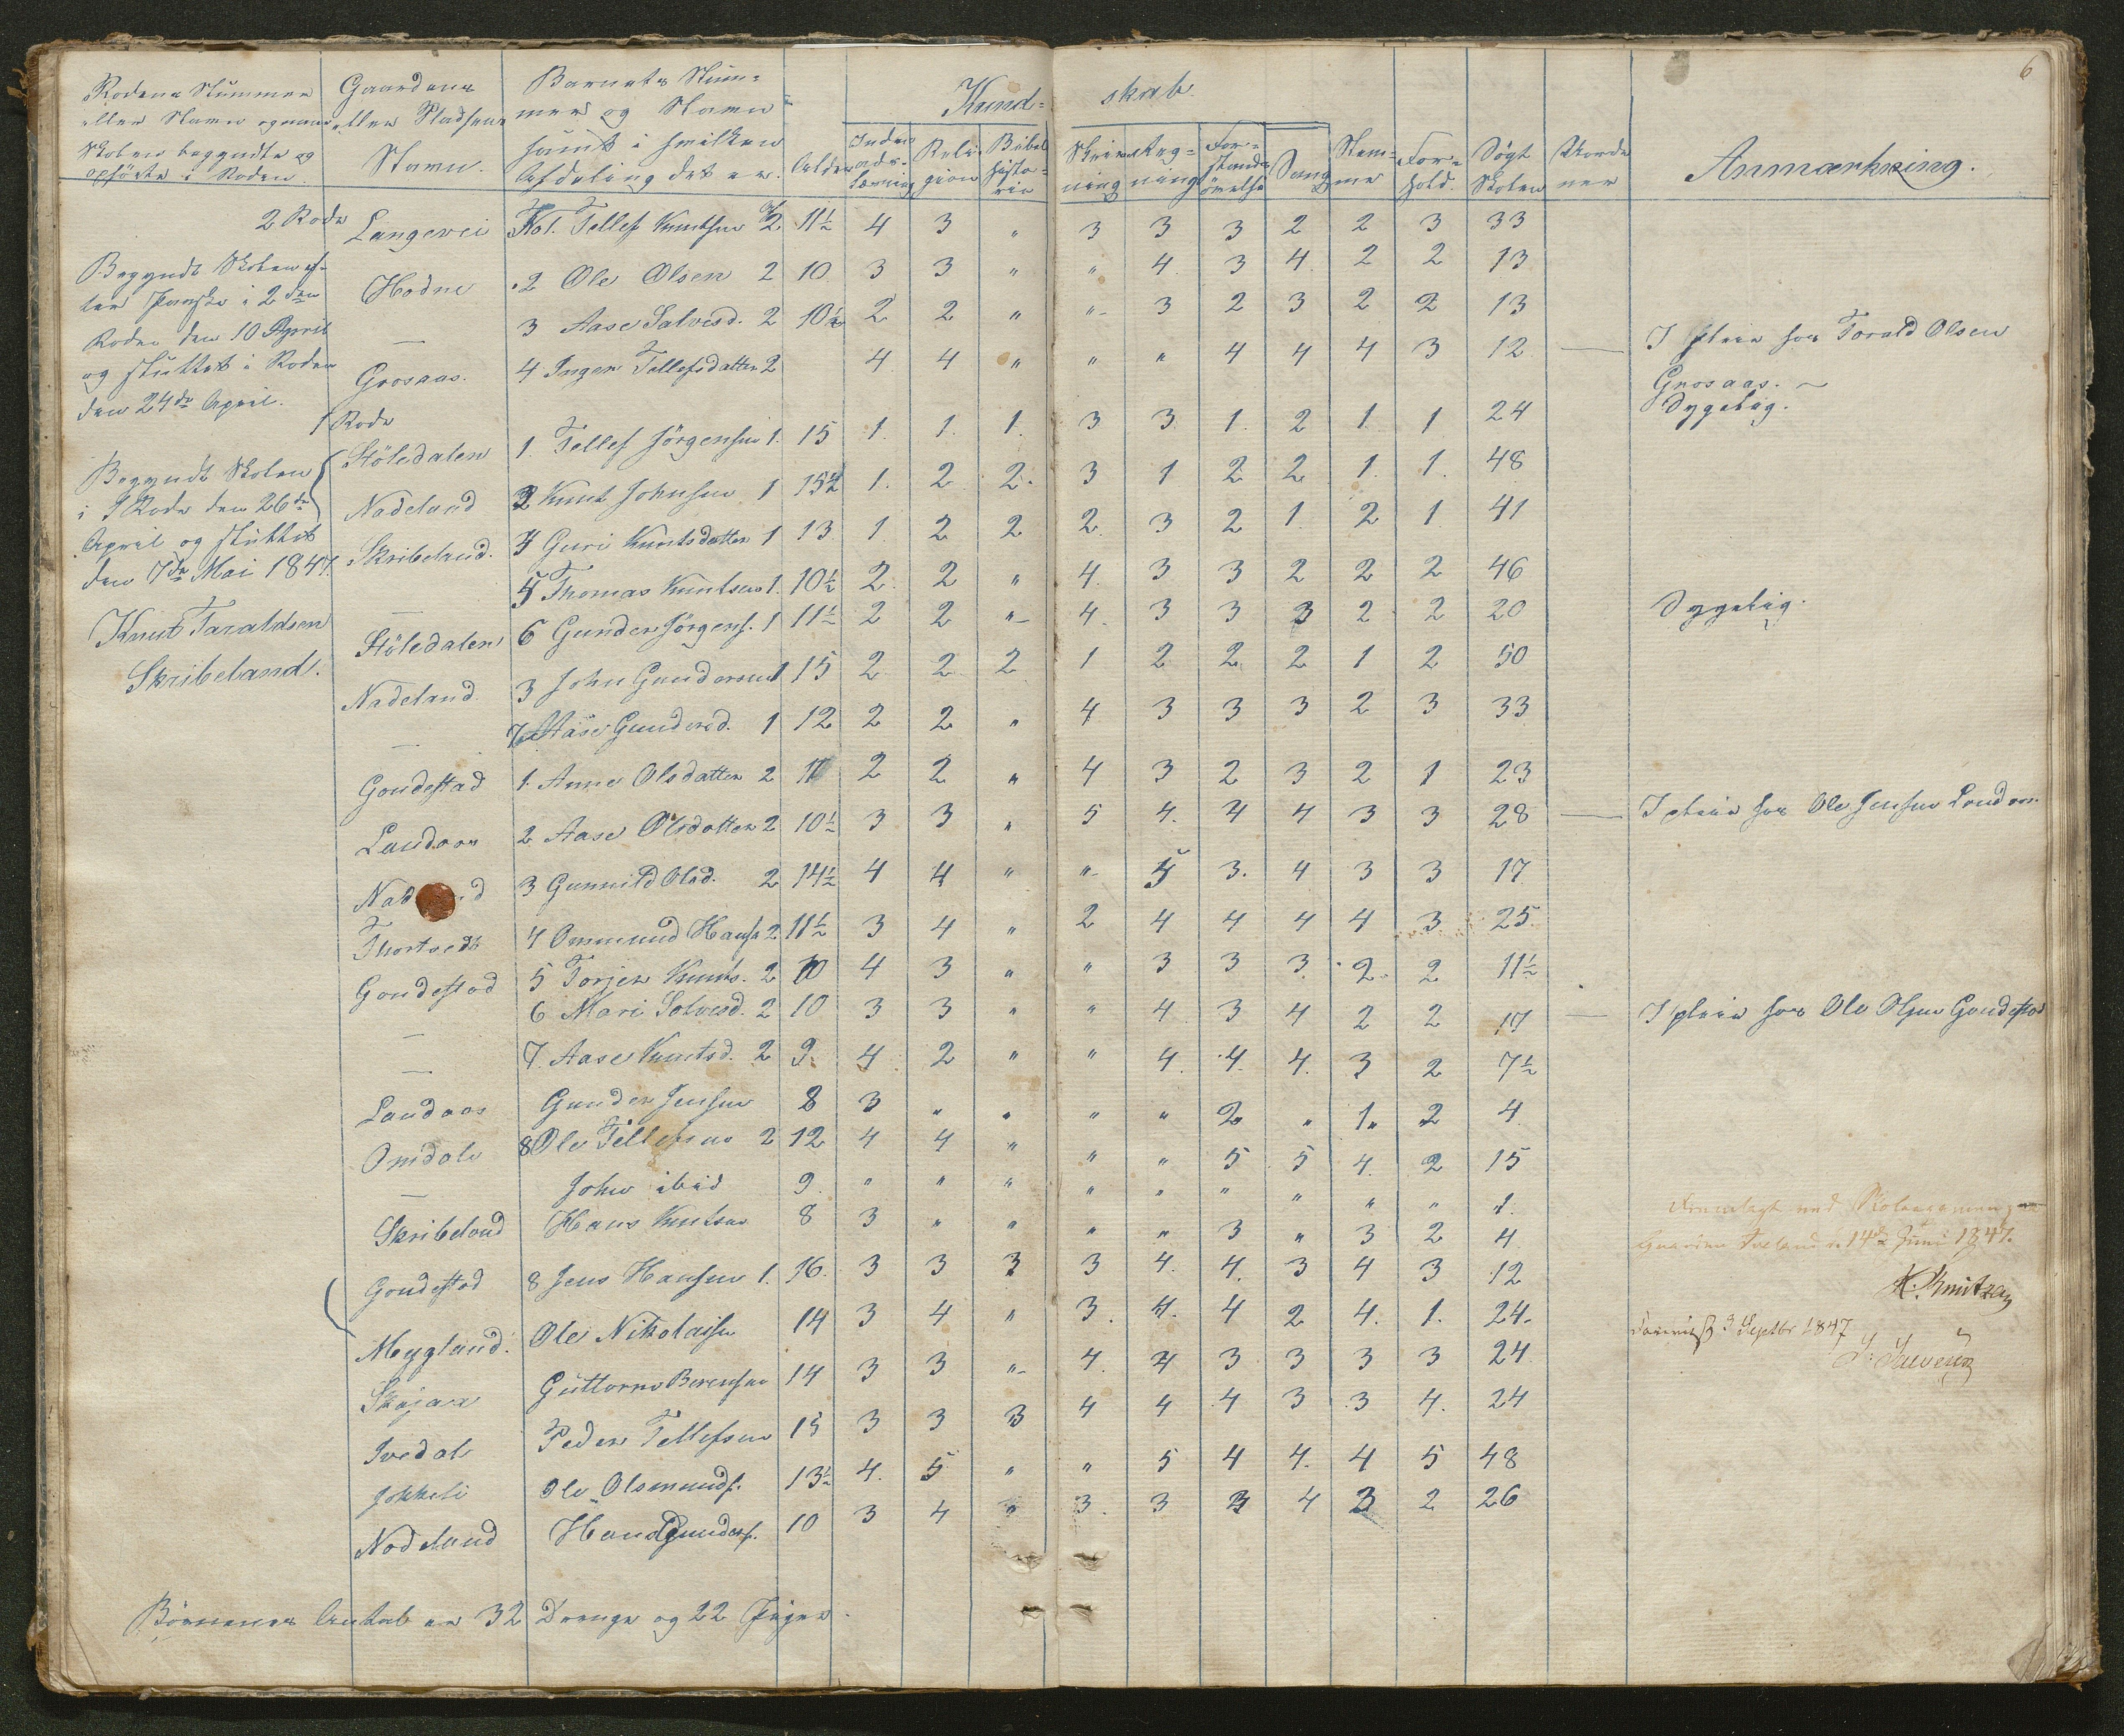 6
Rodens Nummer Gaardens Barnets Num-
eller Navn og naar eller Pladsens mer og Navn Kund- skab.
Skolen begyndte og Navn. samt i hvilken Alder Inden- Reli- Bibel Skriv- Reg- For- Sang Stem- For- Søgt Anmærkning.
opførte i Roden. Afdeling det er. ads- gion histo- ning ning stands me hold. Skolen
læsning rie øvelse
2 Rode Langevei Tellef Knutsen 2 11½ 4 3 " 3 3 3 2 2 3 33
Begyndt Skolen ef-
ter Paaske i 2den Hodne 2 Ole Olsen 2 10 3 3 " " 4 3 4 2 2 13
Roden den 10 April — 3 Aase Salvesd. 2 10½ 2 2 " " 3 2 3 2 2 13
og sluttet i Roden Grosaas. 4 Inger Tellefsdatter 2 4 4 " " " 4 4 4 3 12 — I pleie hos Torald Olsen
den 24de April. Grosaas.
1 Rode
Stöledalen 1. Tellef Jörgensen 1. 15 1. 1. 1. 3 3 1. 2 1. 1 24 Sygelig.
Begyndt Skolen Nadeland 2 Knut Johnsen 1 15½ 1. 2 2. 3 1 2 2 1. 1. 48
i 1 Rode den 26de
April og sluttet Skribeland. 4 Guri Knutsdatter 1 13 1. 2 2 2 3 2 1. 2 1 41
den 7de Mai 1847. — 5 Thomas Knutsen 1. 10½ 2 2 " 4. 3 3 2 2 2 46
Knut Taraldsen Stöledalen 6 Gunder Jörgens. 1 11½ 2 2 " 4. 3 3 3 2 2 20 Sygelig.
Skribeland. Nadeland 3 John Gundersen 1 15 2 2 2 1 2 2 2 1 2 50
— 7 Aase Gundersd. 1 12 2 2 " 4 3 3 3 2 3 33
Gondestad 1. Anne Olsdatter 2 11 2 2 " 4 3 2 3 2 1 23
Landaas 2 Aase Olsdatter 2 10½ 3 3 " 5 4. 4 4 3 3 28 — I pleie hos Ole Jensen Landaas.
3 Gunnild Olsd. 2 14½ 4 4 " " 5 3. 4 3 3 17
Thortvedt 4 Ommund Hans. 2 11½ 3 4 " 2 4 4 4 4 3 25
Gondestad 5 Torjer Knuts. 2 10 4 3 " " 3 3 3 2 2 11½
— 6 Mari Solvesd. 2 10 3 3 " " 4 3 4 2 2 17 — I pleie hos Ole Olsen Gondestad
— 7. Aase Knutsd. 2 9 4 2 " " 4. 4. 4. 3 2 7½
Landaas Gunder Jensen 8 3 " " " " 2 " 1 2 4
Omdal 8 Ole Tellefsen 2 12 4 4 " " " 5 5 4. 2 15
— John ibid 9 " " " " " " " " " 1
Skribeland Hans Knutsen 8 3 " " " " 3 " 3 2 4
Gondestad 8 Jens Hansen 1. 16. 3 3 3 3 4. 4. 3 4 3 12
Meygland. Ole Nikolaisen 14 3 4 " 3. 4. 4 2 4. 1. 24.
Skajaa Guttorm Berensen 14 3 3 " 4. 4 3 3 3 3 24
Ivedal Peder Tellefsen 15 3 3 3 4 4 4 3 3 4. 24
Jokkeli Ole Olsmunds. 13½ 4. 5 " " 5 4 4. 4 5 48
Nodeland Hans Gunders. 10 3 4 " 3 3 3 4 3 2 26
Fremlagt ved Skoleexamen
Gaarden 14de Juni 1847.
K. Knutzen
3 Septbr 1847
Börnenes Antal er 32 Drenge og 22 Piger.